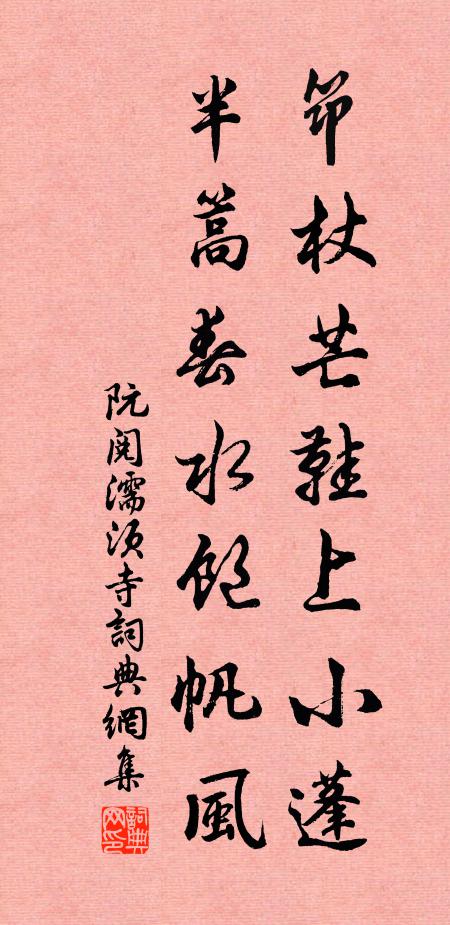 筇杖芒鞋上小蓬
半篙春水飽帆風
阮閱濡須寺詞典網集
詞典网印